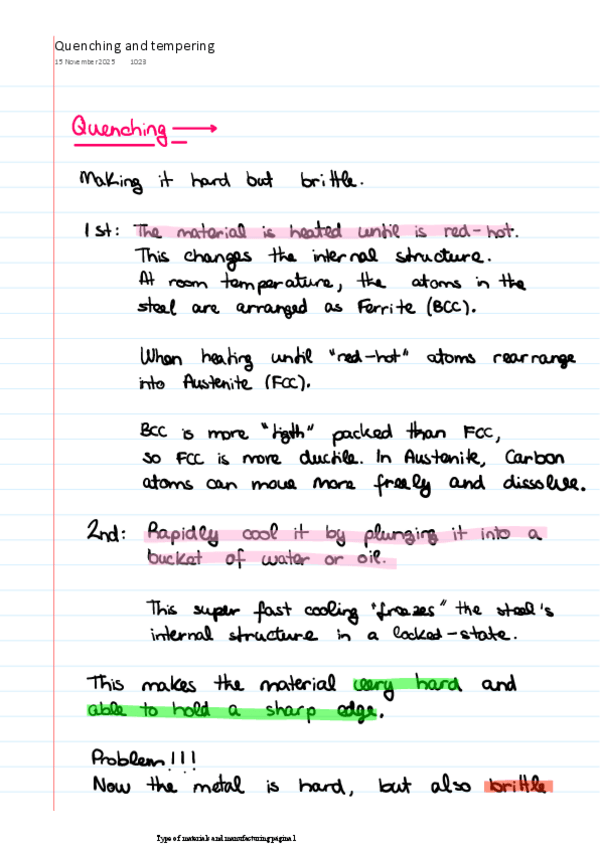 Quenching and tempering
15 November 2025 10:23
Quenching →
Making it hard but brittle.
1st: The material is heated until is red-hot.
This changes the internal structure.
At room temperature, the atoms in the
steel are arranged as Ferrite (BCC).
When heating until "red-hot" atoms rearrange
into Austenite (FCC).
BCC is more "tigth" packed than FCC,
so FCC is more ductile. In Austenite, Carbon
atoms can move more freely and dissolve.
2nd: Rapidly cool it by plunging it into a
bucket of water or oil.
This super fast cooling "freezes" the steel's
internal structure in a locked-state.
This makes the material very hard and
able to hold a sharp edge.
Problem!!!
Now the metal is hard, but also brittle
Type of materials and manufacturing página 1